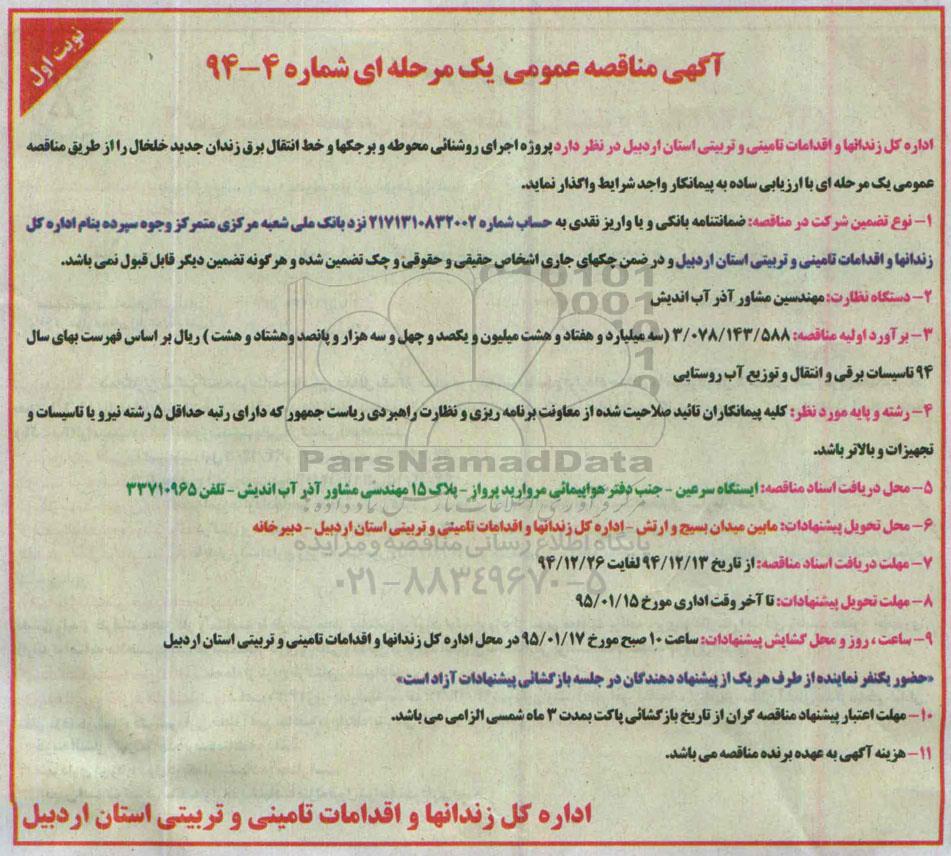 نوبت اول
آگهی مناقصه عمومی یک مرحله ای شماره ۴-۹۴
اداره کل زندانها و اقدامات تامینی و تربیتی استان اردبیل در نظر دارد پروژه اجرای روشنائی محوطه و برجکها و خط انتقال برق زندان جدید خلخال را از طریق مناقصه
عمومی یک مرحله ای با ارزیابی ساده به پیمانکار واجد شرایط واگذار نماید.
۱- نوع تضمین شرکت در مناقصه: ضمانتنامه بانکی و یا واریز نقدی به حساب شماره ۲۱۷۱۳۱۰۸۳۲۰۰۲ نزد بانک ملی شعبه مرکزی متمرکز وجوه سپرده بنام اداره کل
زندانها و اقدامات تامینی و تربیتی استان اردبیل و در ضمن چکهای جاری اشخاص حقیقی و حقوقی و چک تضمین شده و هرگونه تضمین دیگر قابل قبول نمی باشد.
۲- دستگاه نظارت: مهندسین مشاور آذر آب اندیش
۳- برآورد اولیه مناقصه: ۳/۰۷۸/۱۴۳/۵۸۸ (سه میلیارد و هفتاد و هشت میلیون و یکصد و چهل و سه هزار و پانصد وهشتاد و هشت ) ریال بر اساس فهرست بهای سال
۹۴ تاسیسات برقی و انتقال و توزیع آب روستایی
۴- رشته و پایه مورد نظر: کلیه پیمانکاران تائید صلاحیت شده از معاونت برنامه ریزی و نظارت راهبردی ریاست جمهور که دارای رتبه حداقل ۵ رشته نیرو یا تاسیسات و
تجهیزات و بالاتر باشد.
ParsNamadData
۵- محل دریافت اسناد مناقصه: ایستگاه سرعین - جنب دفتر هواپیمائی مروارید پرواز - پلاک ۱۵ مهندسی مشاور آذر آب اندیش - تلفن ۳۳۷۱۰۹۶۵
۶- محل تحویل پیشنهادات: مابین میدان بسیج و ارتش - اداره کل زندانها و اقدامات تامینی و تربیتی استان اردبیل - دبیرخانه
پایگاه اطلاع رسانی مناقصه و مزایده
۷- مهلت دریافت اسناد مناقصه: از تاریخ ۹۴/۱۲/۱۳ لغایت ۹۴/۱۲/۲۶
۰۲۱-۸۸۳۴۹۶۷۰-۵
۸- مهلت تحویل پیشنهادات: تا آخر وقت اداری مورخ ۹۵/۰۱/۱۵
۹- ساعت ، روز و محل گشایش پیشنهادات: ساعت ۱۰ صبح مورخ ۹۵/۰۱/۱۷ در محل اداره کل زندانها و اقدامات تامینی و تربیتی استان اردبیل
«حضور یکنفر نماینده از طرف هر یک از پیشنهاد دهندگان در جلسه بازگشائی پیشنهادات آزاد است»
۱۰- مهلت اعتبار پیشنهاد مناقصه گران از تاریخ بازگشائی پاکت بمدت ۳ ماه شمسی الزامی می باشد.
۱۱- هزینه آگهی به عهده برنده مناقصه می باشد.
اداره کل زندانها و اقدامات تامینی و تربیتی استان اردبیل